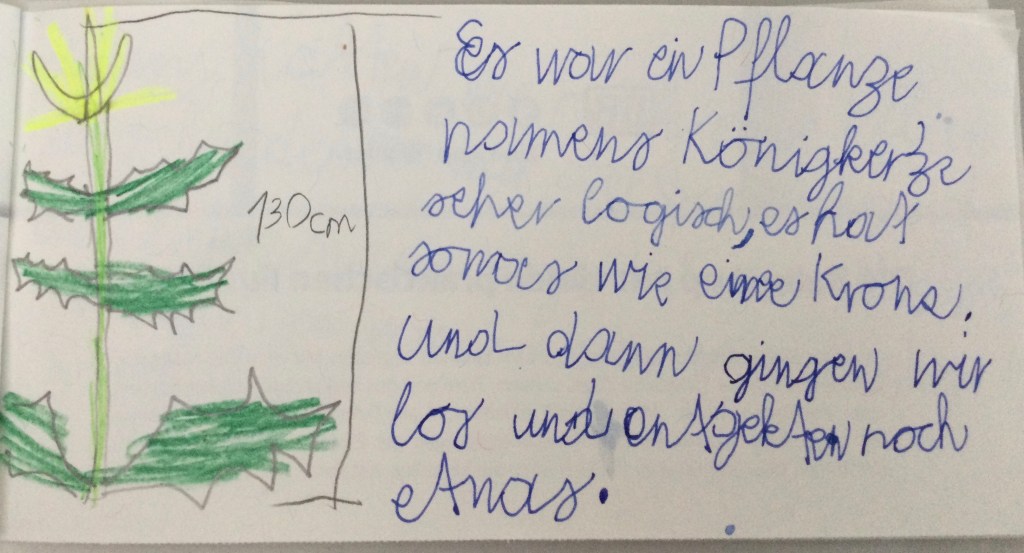 130cm
Es war ein Pflanze
namens Königkerze
seher logisch, es hat
somas wie eine Krone.
Und dann gingen wir
los und entdekten noch
etwas.